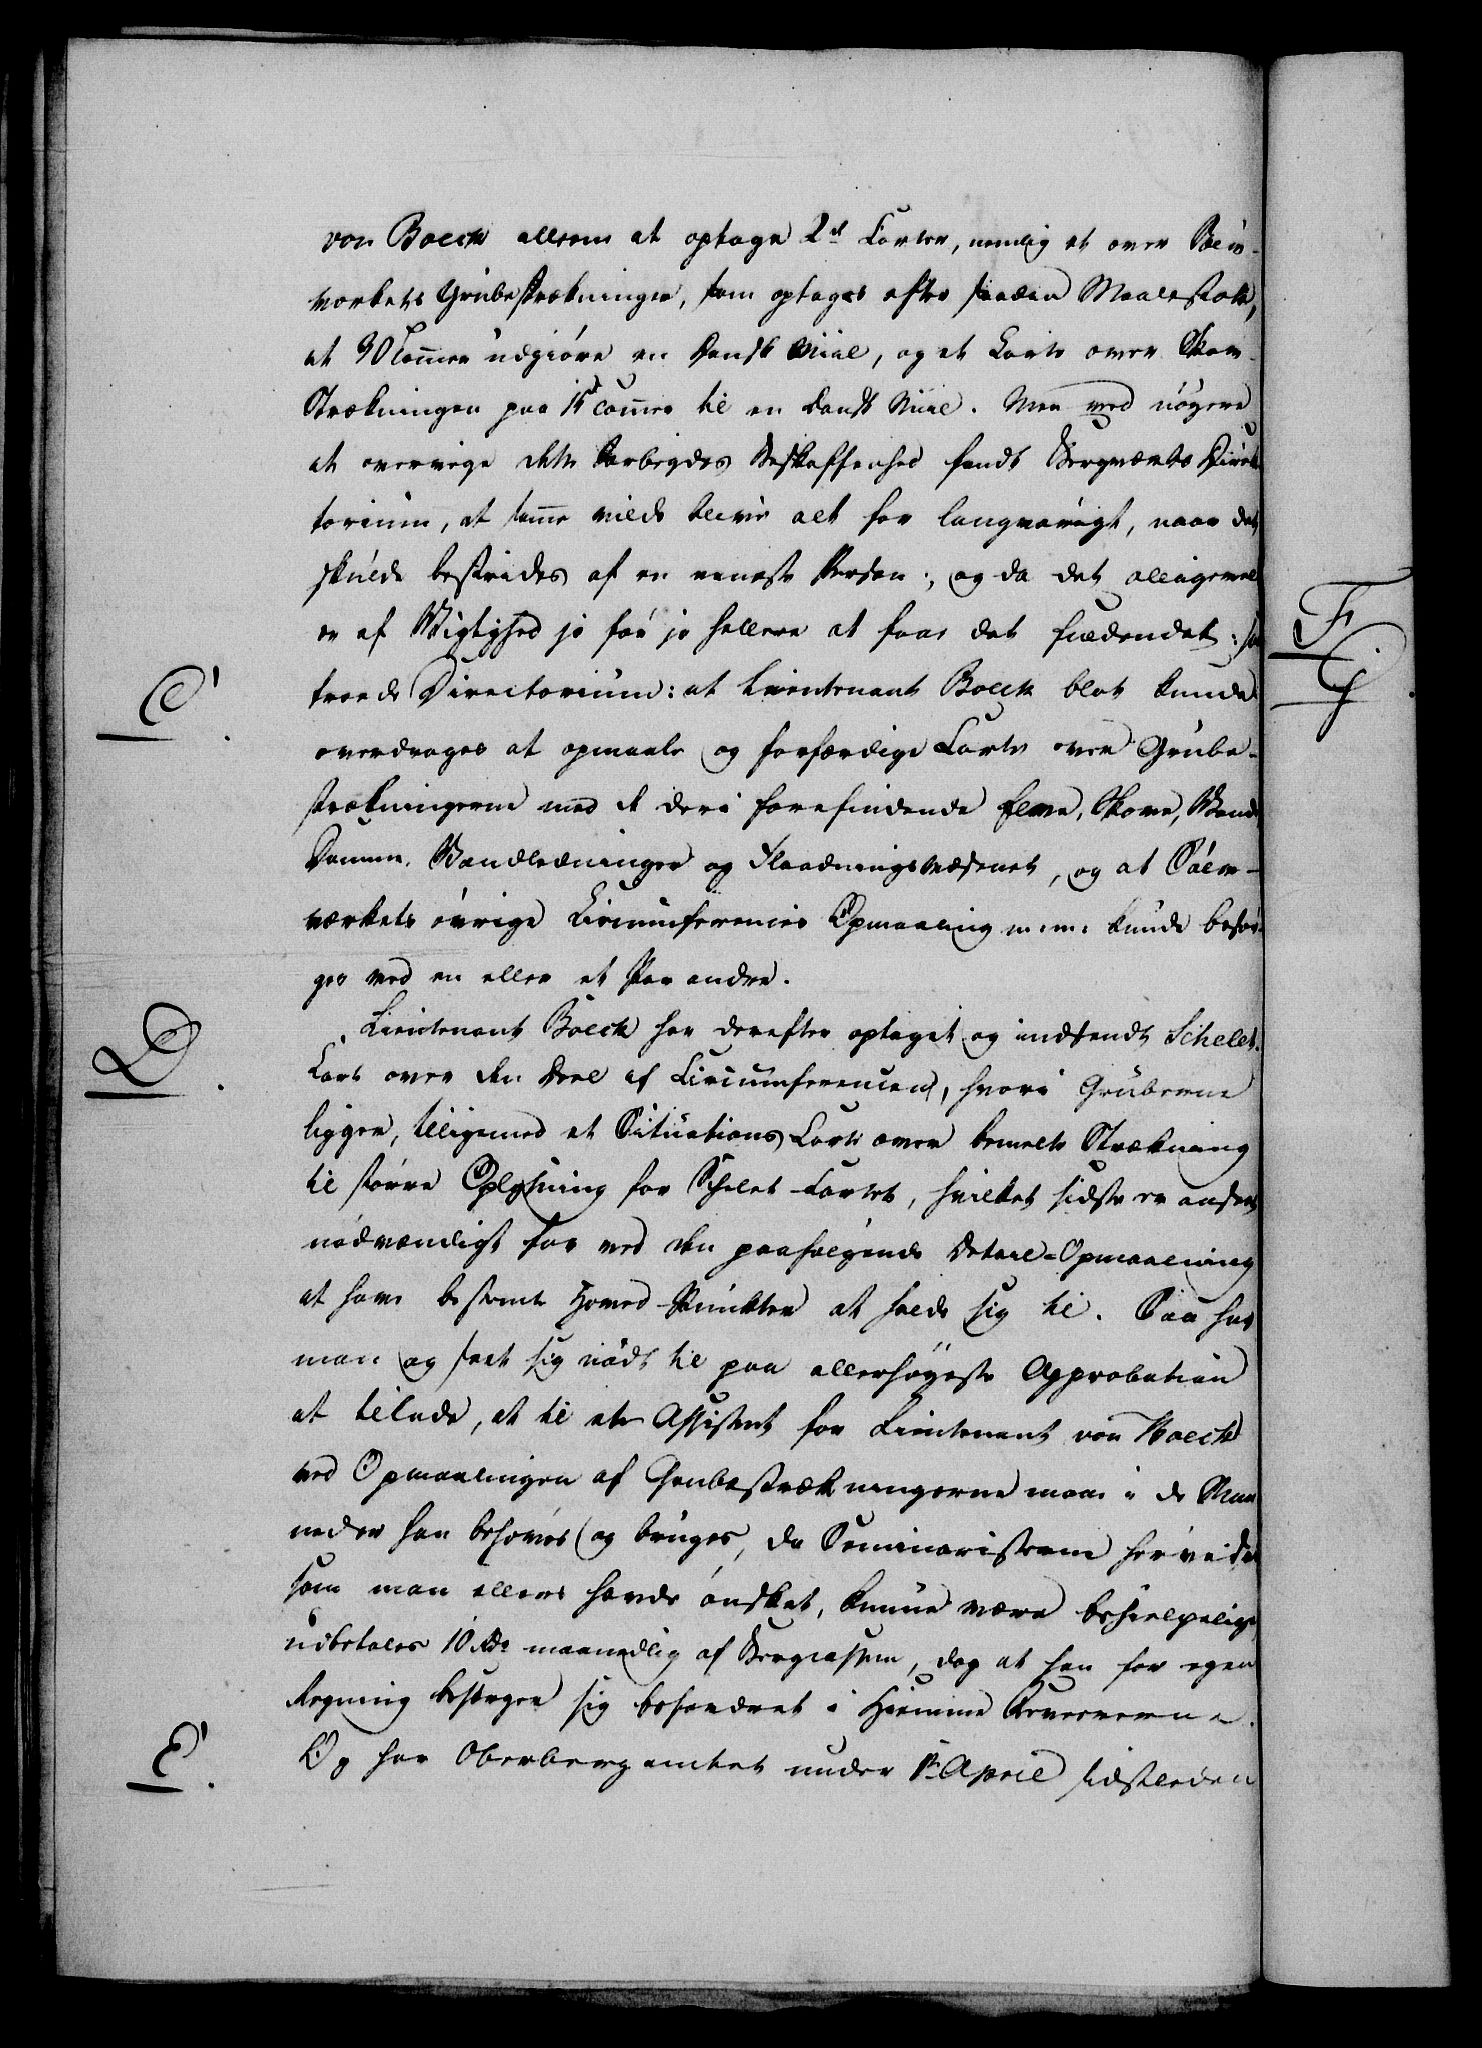 von Boeck alleene at optage 2de Carter, nemlig et over Sølv-
værkets Grubestrækninger, som optages efter saadan Maalestok,
at 30 Tommer udgiøre en Dansk Miil, og et Carte over Skov-
Strækningen paa 15 Tommer til en dansk Miil. Men ved nøyere
at overveye dette Arbeydes Beskaffenhed fandt Bergværks Direc-
torium, at samme vilde blive alt for langvarigt, naar det
skulde bestrides af en eeneste Person; og da det alligevel
er af Vigtighed jo før jo hellere at faae det fuldendet: saa
C.
troede Directorium: at Lieutenant Boeck blot kunde
overdrages at opmaale og forfærdige Carte over Grube-
strækningerne med de deri forefindende Elve, Skove, Vand-
Damme, Vandledninger og Flaadningsvæsenet, og at Sølv-
værkets øvrige Circumferences Opmaaling m: m: kunde besør-
ges ved en eller et Par andre.
D.
Lieutenant Boeck har derefter optaget og indsendt Schelet-
Cart over den Deel af Circumferencen, hvori Gruberne
ligger, tilligemed et Situations Carte over bemelte Strækning
til større Oplysning for Schelet-Cartet, hvilket sidste er anseet
nødvændigt for ved den paafølgende Detail-Opmaaling
at have bestemte Hoved-Puncter at holde sig til. Saa har
man og seet sig nødt til paa allerhøyeste Approbation
at tillade, at til en Assistent for Lieutenant von Boeck
ved Opmaalingen af Grubestrækningerne maae i de Maa-
neder han behøves og bruges, da Seminaristerne herved
som man ellers havde ønsket, kunne være behielpelige
udbetales 10 Rdr maanedlig af Bergcassen, dog at han for egen
Regning besørger sig befordret i
E.
Og har Oberbergamtet under 1te April sidstleden
F.
G.